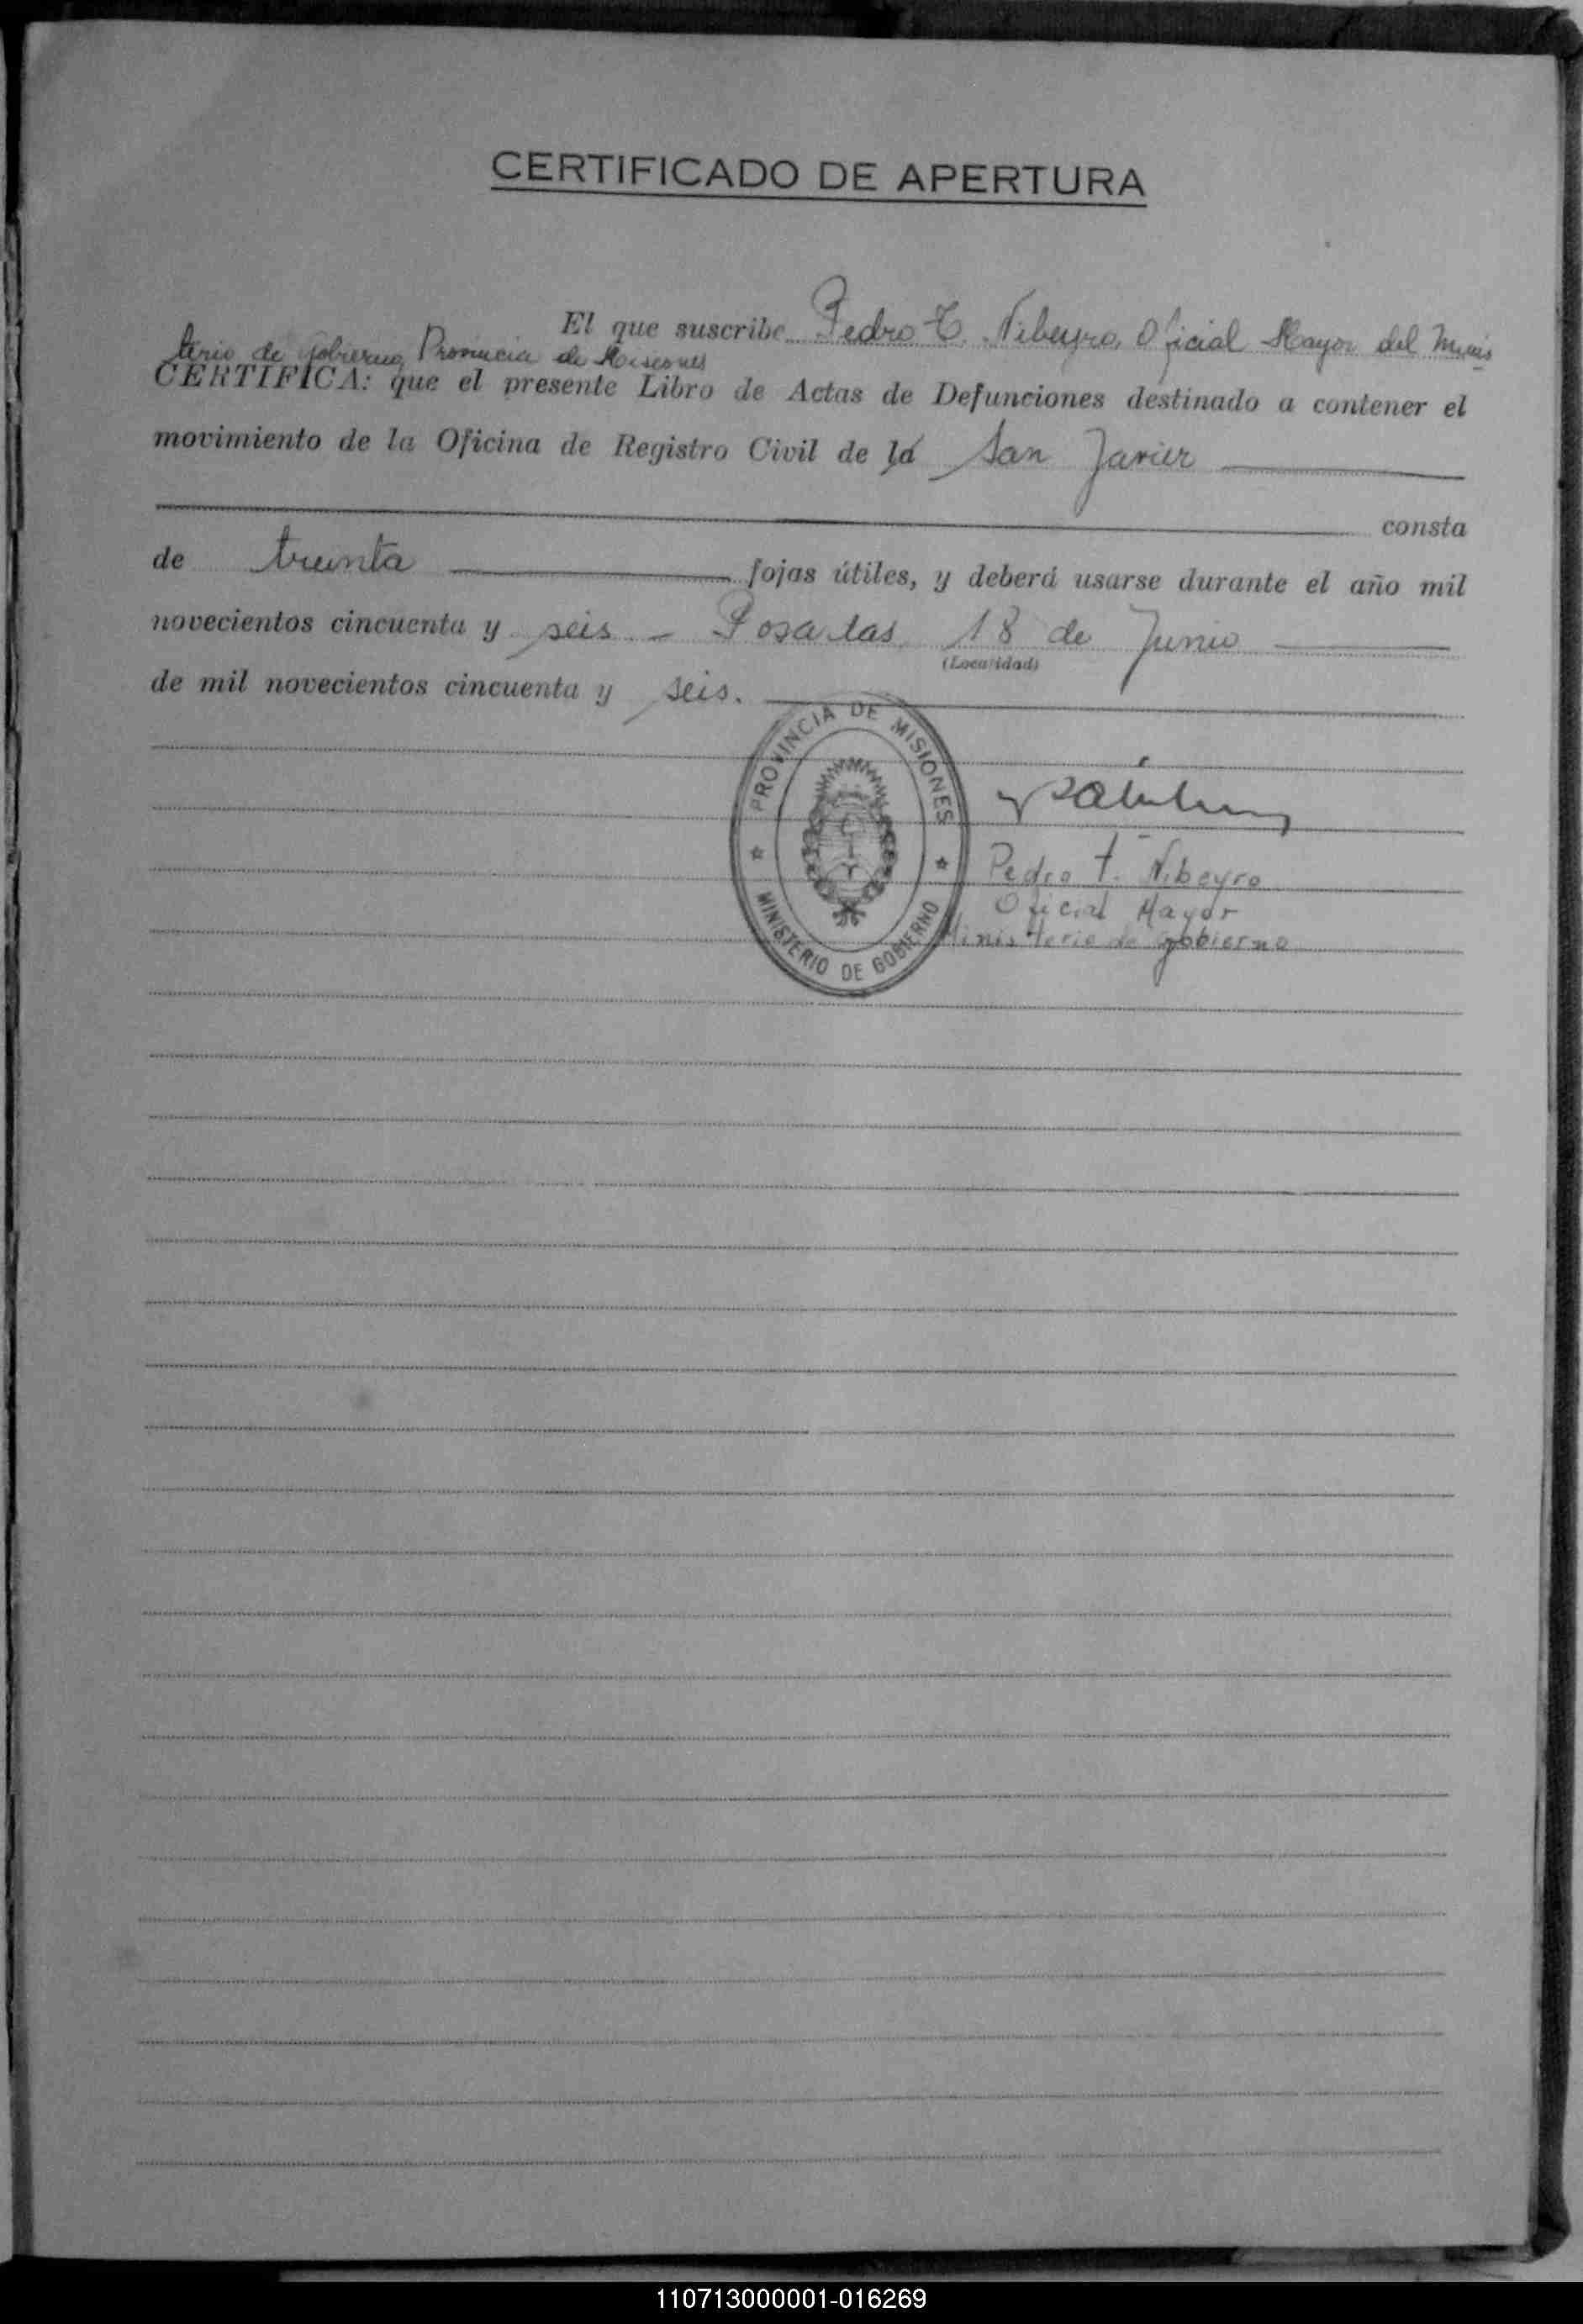 CERTIFICADO DE APERTURA
El que suscribe Pedro T. Nibeyro, Oficial Mayor del Minis
terio de Gobierno, Provincia de Misiones
CERTIFICA: que el presente Libro de Actas de Defunciones destinado a contener el
movimiento de la Oficina de Registro Civil de la San Javier
consta
de treinta fojas útiles, y deberá usarse durante el año mil
novecientos cincuenta y seis - Posadas 18 de Junio
(Localidad)
de mil novecientos cincuenta y seis.
PROVINCIA DE MISIONES
MINISTERIO DE GOBIERNO
Pedro T. Nibeyro
Oficial Mayor
Ministerio de Gobierno
110713000001-016269